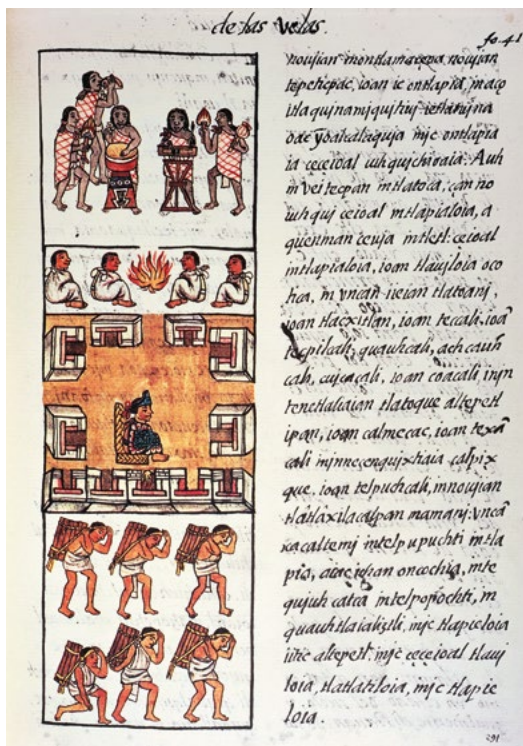 de las velas.
fo. 41
noujian montlamaceva noujian
tepeticpac, ioan ic ontlapia, in aço
itla quinamiquitiuj
oac ỹoalcalaquja mjc ontlapia
ia ceceioal iuh qujchivaia: Auh
in vei tecpan in tlatoca, çan no
iuh qui ceioal in tlapialoia, a
quenman ceuja in tletl: ceioal
in tlapialoia, ioan tlaviloia oco
tica, in vncan ieian tlatoanj,
ioan tlacxitlan, ioan teccali, ioã
tecpilcali, quauhcali, achcauh
cali, cujcacali, ioan coacali, injn
tenetlaliaian tlatoque altepetl
ipan, ioan calmecac, ioan texã
cali innecenqujxtiaia calpix
que, ioan telpuchcali, in noujian
tlatlaxilacalpan mamanj: vncã
in telpupuchti in tla
pia, aiac ichan oncochia, in te
qujuh catca in telpopochti, in
quauhtlaializtli, injc tlapieloia
iitic altepetl, injc ceceioal tlavi
loia, tlatlatiloia, injc tlapie
loia.
291